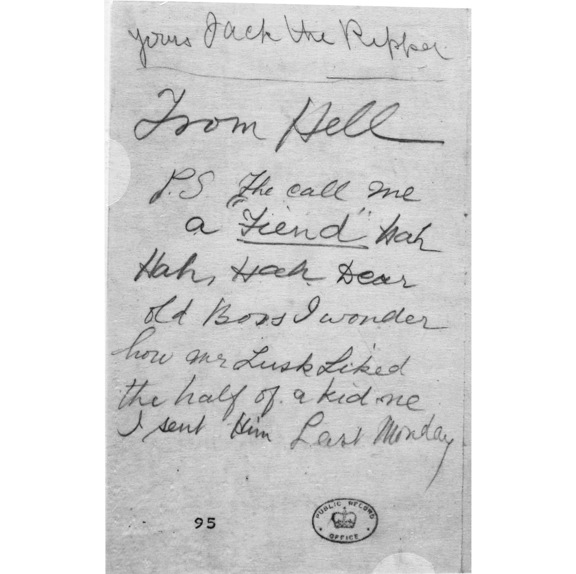 yours Jack the Ripper
From Hell
P.S The call me
a "Fiend" hah
Hah, Hah Dear
old Boss I wonder
how mr Lusk Liked
the half of a kid-ne
I sent Him Last Monday
95
PUBLIC RECORD
OFFICE